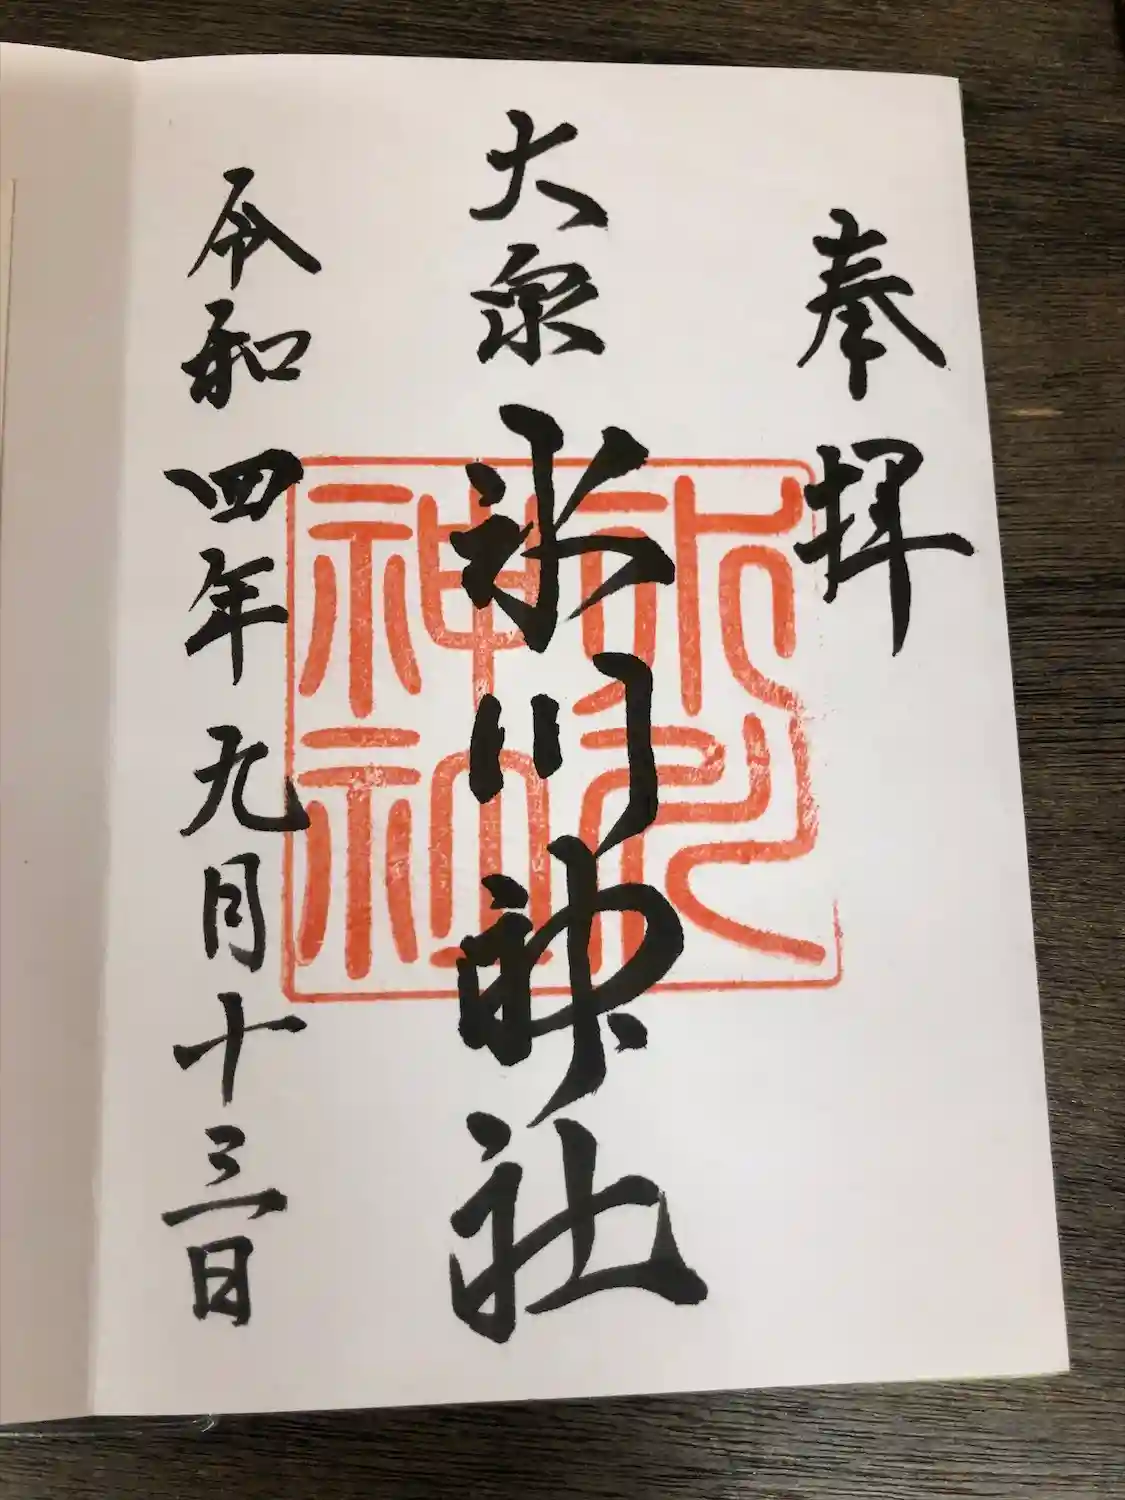 奉拝
大泉
氷川神社
令和四年九月十三日
氷川
神社